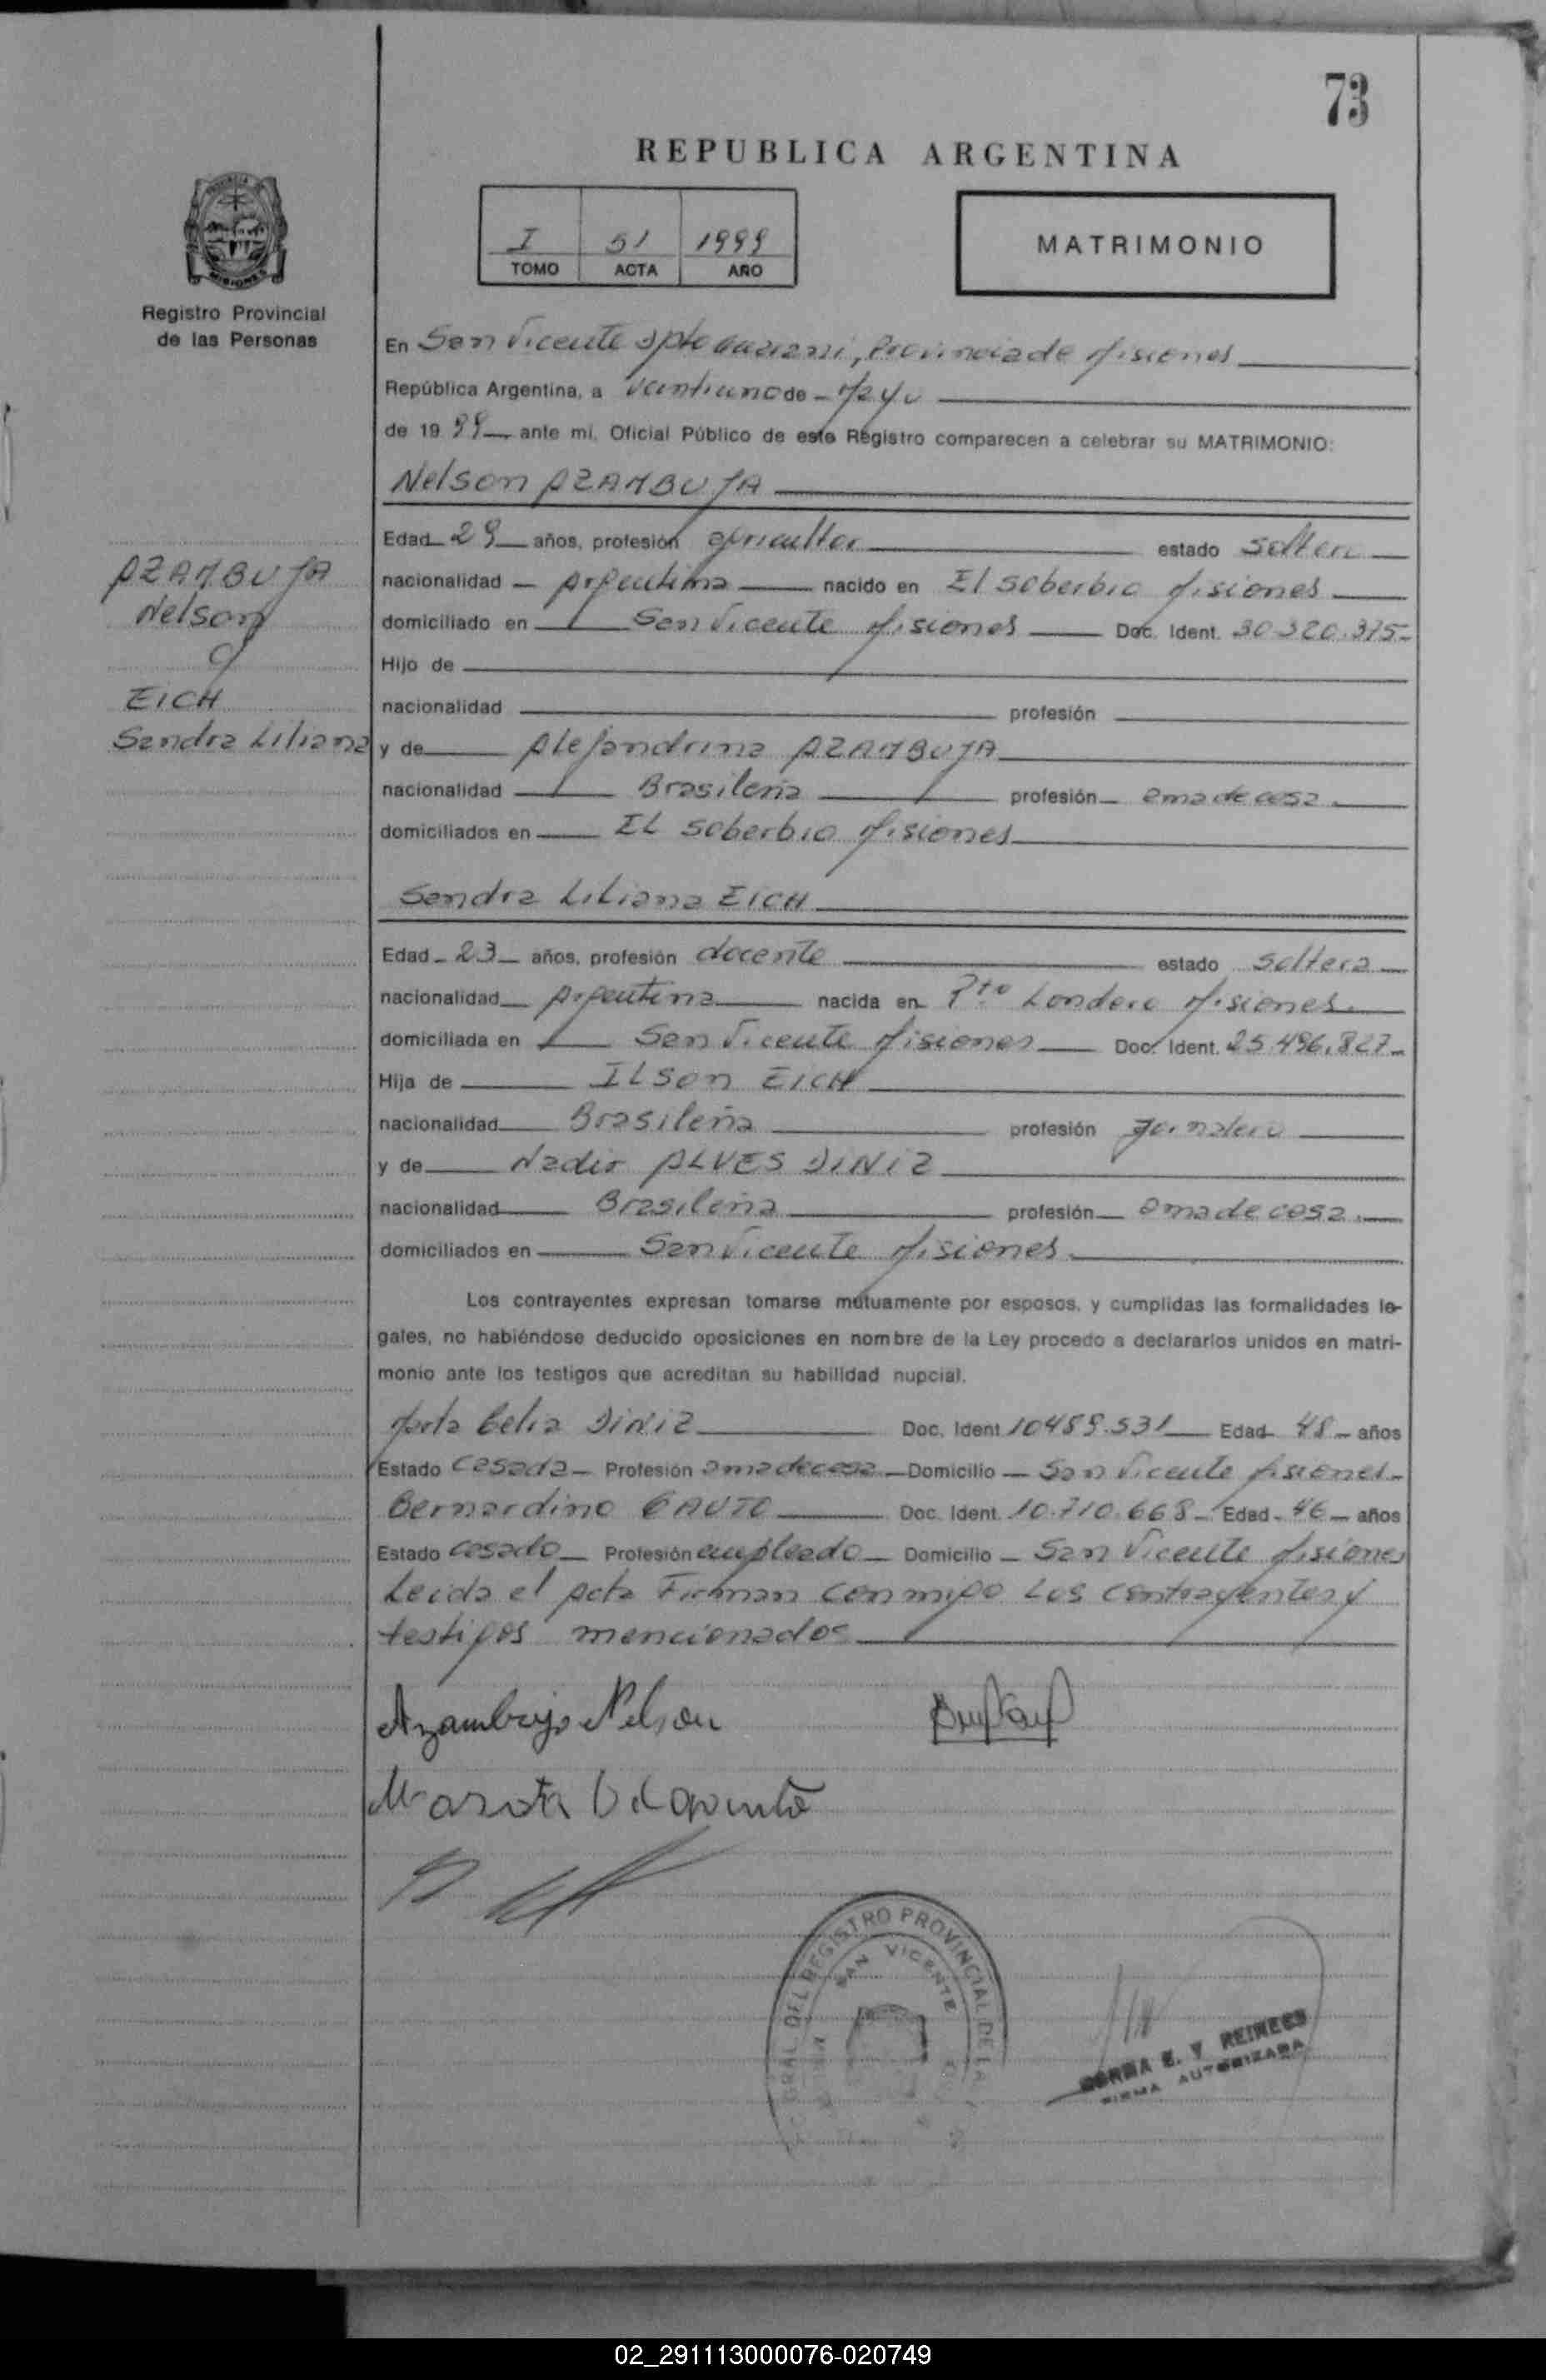 73
REPUBLICA ARGENTINA
I 51 1999
TOMO ACTA AÑO
MATRIMONIO
Registro Provincial
de las Personas
En San Vicente Dpto Guaraní, Provincia de Misiones
República Argentina, a veintiuno de Mayo
de 19 99 ante mí, Oficial Público de este Registro comparecen a celebrar su MATRIMONIO:
Nelson AZAMBUJA
AZAMBUJA
Nelson
c/
EICH
Sandra Liliana
Edad 29 años, profesión agricultor estado soltero
nacionalidad Argentina nacido en El Soberbio Misiones
domiciliado en San Vicente Misiones Doc. Ident. 30.320.375
Hijo de
nacionalidad profesión
y de Alejandrina AZAMBUJA
nacionalidad Brasileña profesión ama de casa
domiciliados en EL Soberbio Misiones
Sandra Liliana EICH
Edad 23 años, profesión docente estado soltera
nacionalidad Argentina nacida en Pto Londero Misiones
domiciliada en San Vicente Misiones Doc. Ident. 25.496.827
Hija de ILson EICH
nacionalidad Brasileña profesión Jornalero
y de Nadir ALVES DINIZ
nacionalidad Brasileña profesión ama de casa
domiciliados en San Vicente Misiones
Los contrayentes expresan tomarse mutuamente por esposos, y cumplidas las formalidades le-
gales, no habiéndose deducido oposiciones en nombre de la Ley procedo a declararlos unidos en matri-
monio ante los testigos que acreditan su habilidad nupcial.
Celia DINIZ Doc. Ident 10489.531 Edad 48 años
Estado casada Profesión ama de casa Domicilio San Vicente Misiones
Bernardino CAUTO Doc. Ident. 10.710.668 Edad 46 años
Estado casado Profesión empleado Domicilio San Vicente Misiones
Leida el Acta Firman conmigo Los contrayentes y
testigos mencionados
Azambuja Nelson
DEL REGISTRO PROVINCIAL DE LA
SAN VICENTE
NORMA E. V REINECS
FIRMA AUTORIZADA
02_291113000076-020749